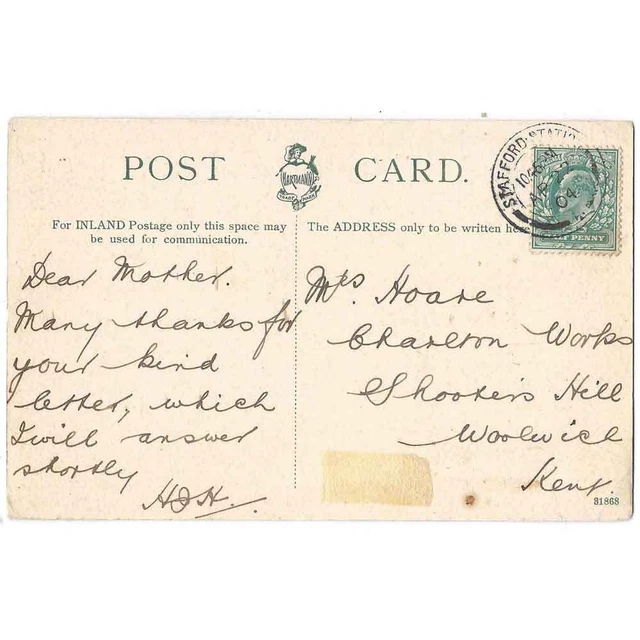 POST CARD.
HARTMANN
TRADE MARK
For INLAND Postage only this space may
be used for communication.
The ADDRESS only to be written here
STAFFORD·STATIO
04
PENNY
Dear Mother.
Many thanks for
your kind
letter, which
I will answer
shortly
HJH.
Mrs Hoare
Charlton Works
Shooters Hill
Woolwich
Kent.
31868